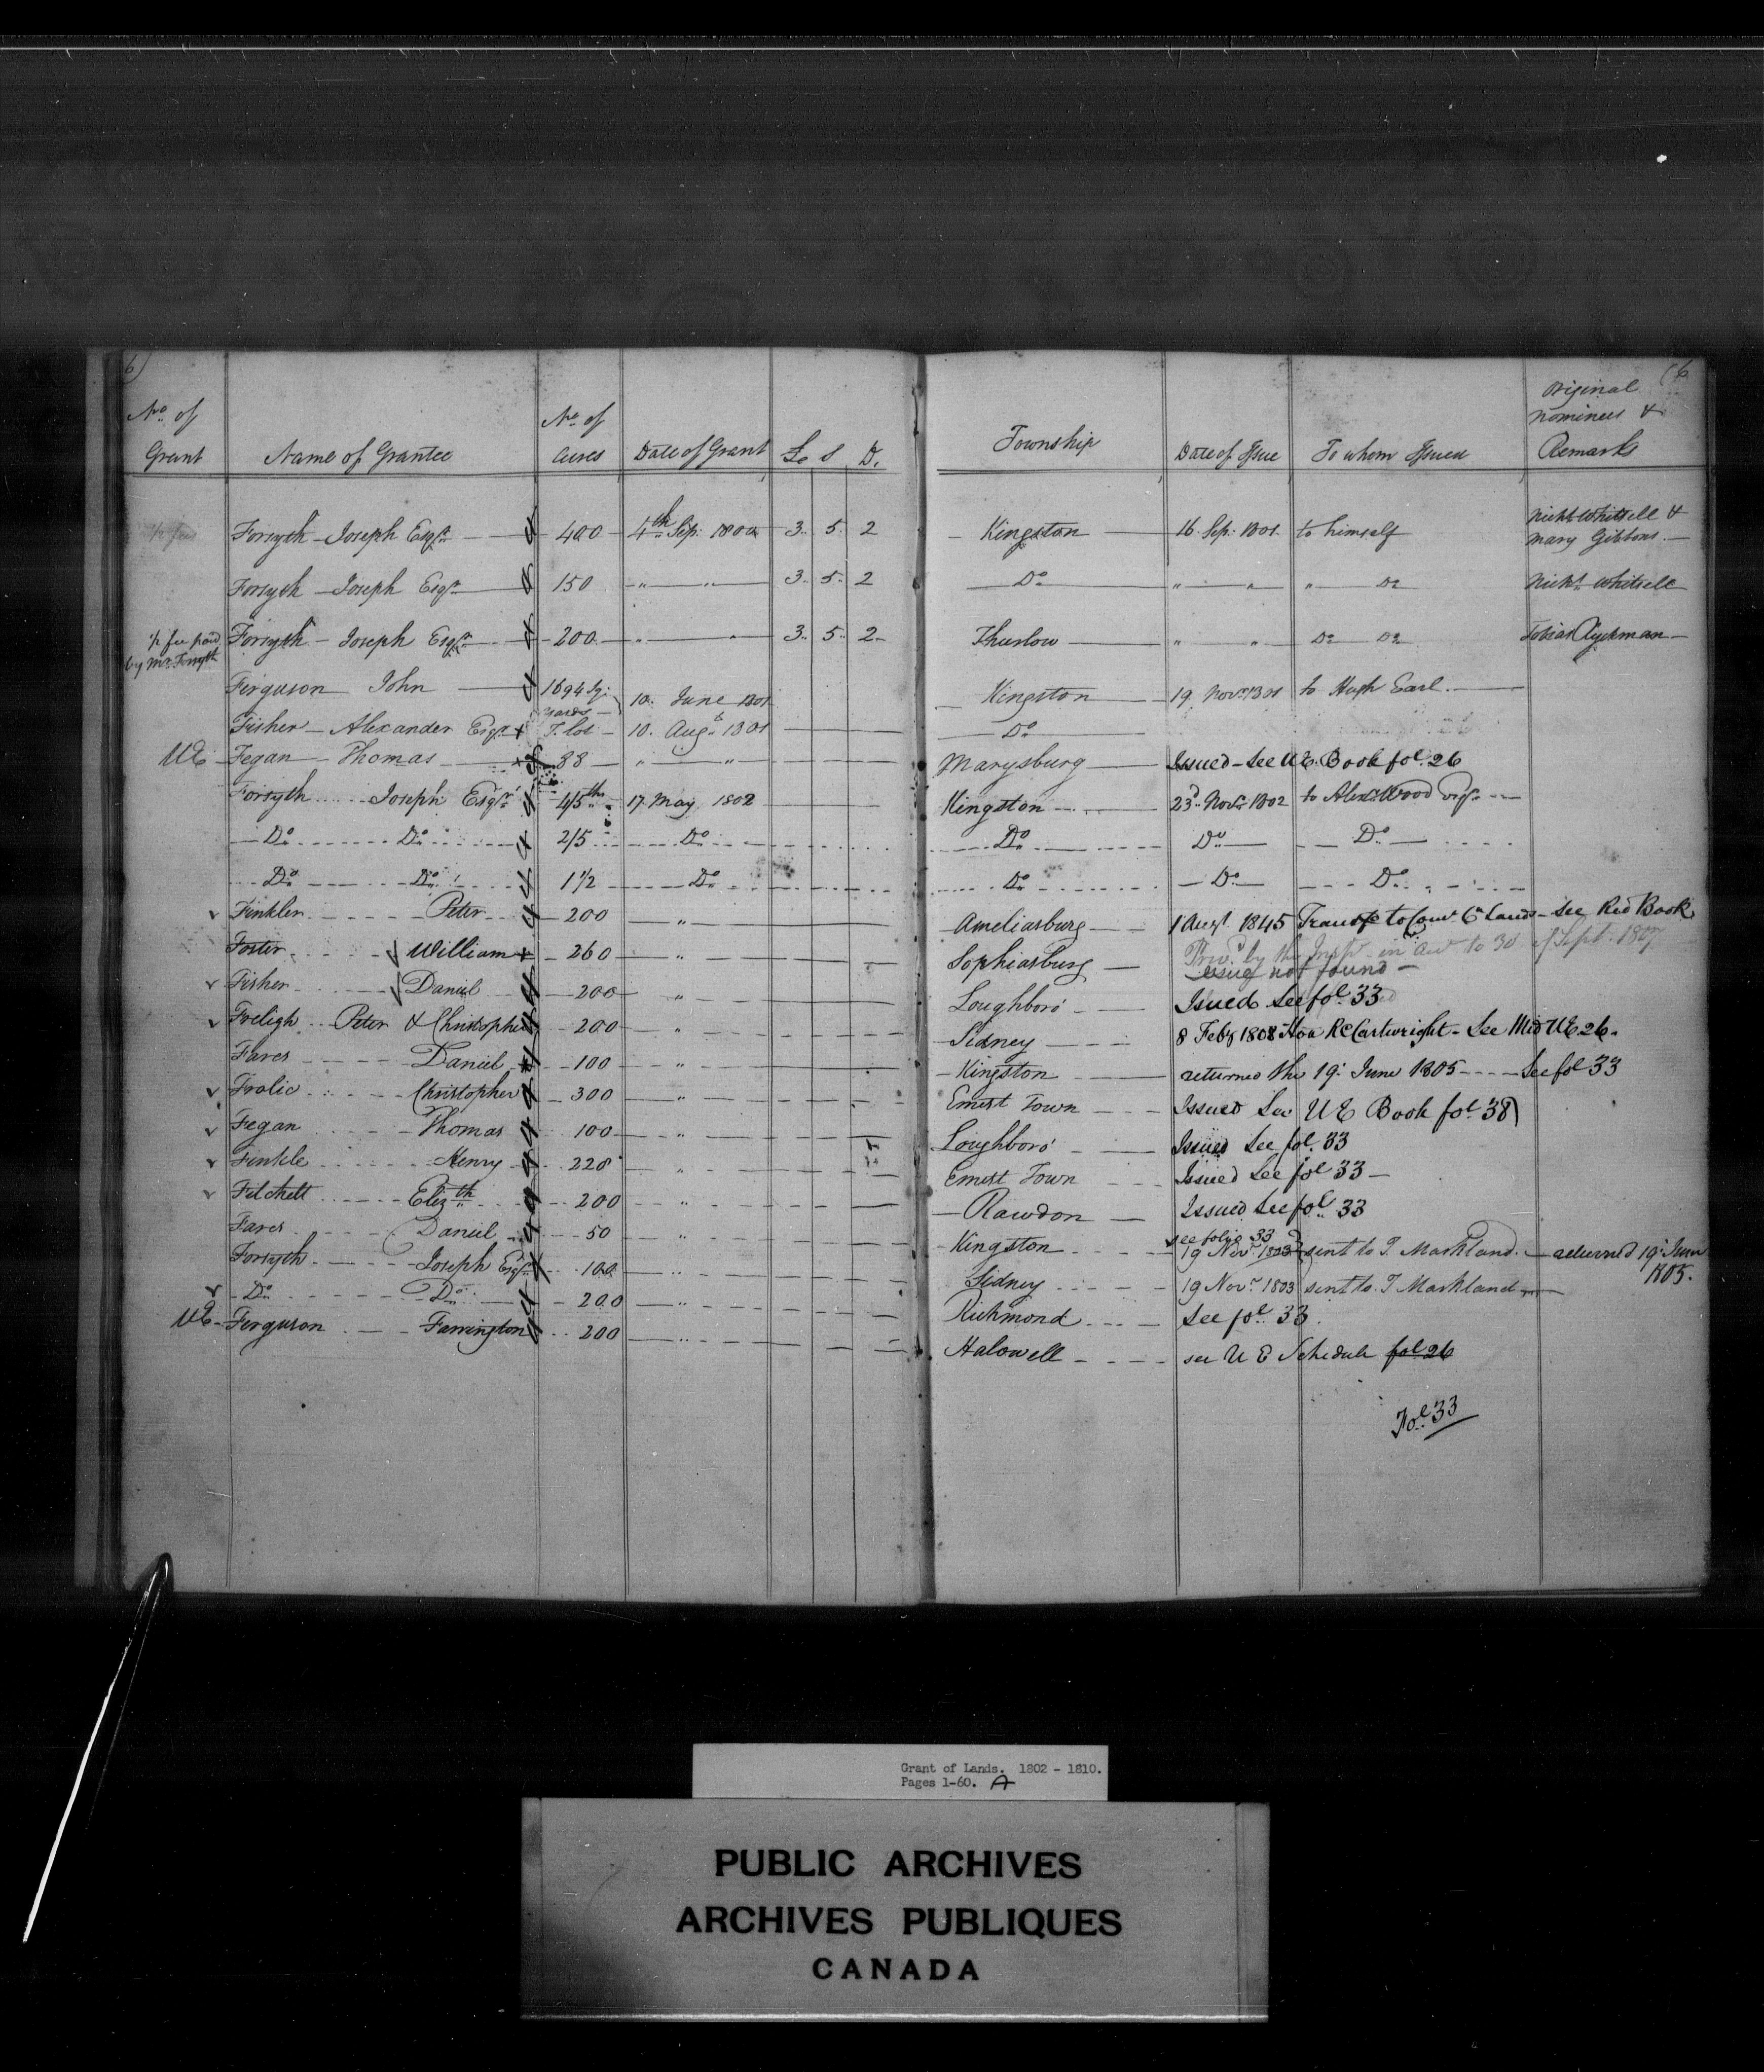 6) (6
No. of Grant Name of Grantee No. of Acres Date of Grant £ S D. Township Date of Issue To whom Issued Original nominees & Remarks
Forsyth - Joseph Esqr. 400 4th Sep. 1800 3.. 5.. 2 Kingston 16 Sep. 1801 to himself Nichs Whitsell & Mary Gibbons
Forsyth - Joseph Esqr. 150 " " 3.. 5.. 2 Do " " " Do Nichs. Whitsell
½ fee paid by Mr. Forsyth Forsyth - Joseph Esqr. 200 " " 3.. 5.. 2 Thurlow " " Do Do Tobias Ryckman
Ferguson John 1694 Sq: yards 10. June 1801 Kingston 19 Novr. 1801 to Hugh Earl.
Fisher - Alexander Esqr. T. lot 10. Augt. 1801 Do
UE Fegan Thomas 88 " " Marysburg Issued - See UE. Book fol. 26
Forsyth Joseph Esqr. 4/5ths 17 May 1802 Kingston 23d. Novr. 1802 to Alexr. Wood Esqr.
Do Do 2/5 Do Do Do Do
Do Do 1½ Do Do Do Do
Finkler Peter 200 " Ameliasburg 1 Augt. 1845 Transfd to Comr Cn Lands - See Red Book
Foster William 260 " Sophiasburg by the Insp in to 30 of Sept. 1807
issue not found -
Fisher Daniel 200 " Loughboro' Issued See fol. 33
Freligh Peter & Christopher 200 " Sidney 8 Feby 1808 Hon R Cartwright - See Mid UE 26.
Fares Daniel 100 Kingston returned the 19. June 1805 - See fol 33
Frolic Christopher 300 " Ernest Town Issued See UE Book fol. 38)
Fegan Thomas 100 " Loughboro' Issued See fol. 33
Finkle Henry 228 " Ernest Town Issued See fol 33 -
Fitchett Elizth. 200 " Rawdon Issued See fol. 33
Fares Daniel 50 " Kingston see folio 33 19 Novr. 1803 sent to T. Markland. returned 19. June 1805.
Forsyth Joseph Esqr. 100 " Sidney 19 Novr. 1803 sent to T. Markland
Do Do 200 " Richmond See fol. 33.
UE - Ferguson Farrington 200 " Halowell see UE Schedule fol 26
Fol. 33
Grant of Lands. 1802 - 1810.
Pages 1-60. A
PUBLIC ARCHIVES
ARCHIVES PUBLIQUES
CANADA